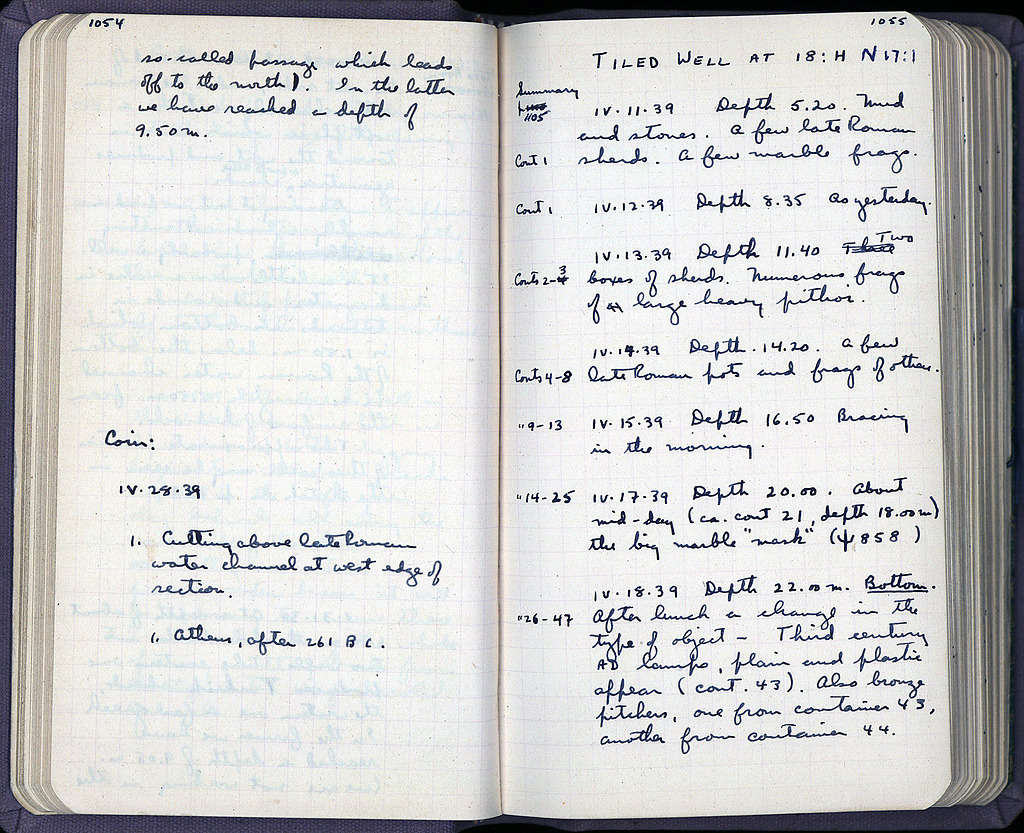 1054
so-called passage which leads
off to the north). In the latter
we have reached a depth of
9.50 m.
Coin:
IV·28·39
1. Cutting above late Roman
water channel at west edge of
section.
1. Athens, after 261 B C.
1055
TILED WELL AT 18:H N 17:1
Summary
1105
IV·11·39 Depth 5.20. Mud
and stones. A few late Roman
Cont 1 sherds. A few marble frags.
Cont 1 IV·12·39 Depth 8.35 as yesterday.
IV·13·39 Depth 11.40 Two
Conts 2-3 boxes of sherds. Numerous frags
of large heavy pithoi.
IV·14·39 Depth 14.20. A few
Conts 4-8 late Roman pots and frags of others.
" 9-13 IV·15·39 Depth 16.50 Bracing
in the morning.
" 14-25 IV·17·39 Depth 20.00. About
mid-day (ca. cont 21, depth 18.00 m)
the big marble "mask" (ψ 858 )
IV·18·39 Depth 22.00 m. Bottom.
" 26-47 After lunch a change in the
type of object – Third century
AD lamps, plain and plastic
appear (cont. 43). Also bronze
pitchers, one from container 43,
another from container 44.